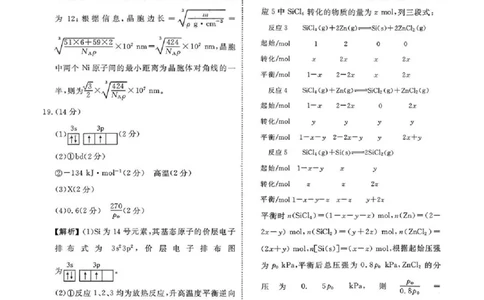 为 12;根据信息,晶胞边长 = ∛(m / ρ g·cm⁻³) =
∛(51×6+59×2 / N_Aρ) ×10⁷ nm = ∛(424 / N_Aρ) ×10⁷ nm,晶胞
中两个 Ni 原子间的最小距离为晶胞体对角线的一
半,则为 √3/2 × ∛(424 / N_Aρ) ×10⁷ nm。
19.(14 分)
(1) 3s 3p [↑↓] [↑|↑| ] (2 分)
(2)①bd(2 分)
②-134 kJ·mol⁻¹(2 分) 高温(2 分)
(3)X(2 分)
(4)0.6(2 分) 270/p₀ (2 分)
【解析】(1)Si 为 14 号元素,其基态原子的价层电子
排布式为 3s²3p²,价层电子排布图
为 3s 3p [↑↓] [↑|↑| ]。
(2)①反应 1、2、3 均为放热反应,升高温度平衡逆向
应 5 中 SiCl₄ 转化的物质的量为 z mol,列三段式:
反应 3 SiCl₄(g)+2Zn(g)⇌Si(s)+2ZnCl₂(g)
起始/mol 1 2 0 0
转化/mol x 2x x 2x
平衡/mol 1-x 2-2x x 2x
反应 4 SiCl₄(g)+Zn(g)⇌SiCl₂(g)+ZnCl₂(g)
起始/mol 1-x 2-2x 0 2x
转化/mol y y y y
平衡/mol 1-x-y 2-2x-y y 2x+y
反应 5 SiCl₄(g)+Si(s)⇌2SiCl₂(g)
起始/mol 1-x-y x y
转化/mol z z 2z
平衡/mol 1-x-y-z x-z y+2z
平衡时 n(SiCl₄)=(1-x-y-z) mol,n(Zn)=(2-
2x-y) mol,n(SiCl₂)=(y+2z) mol,n(ZnCl₂)=
(2x+y) mol,n[Si(s)]=(x-z) mol,根据起始压强
为 p₀ kPa,平衡后总压强为 0.8p₀ kPa,ZnCl₂ 的分
压为 0.5p₀ kPa,则 p₀/0.8p₀ =